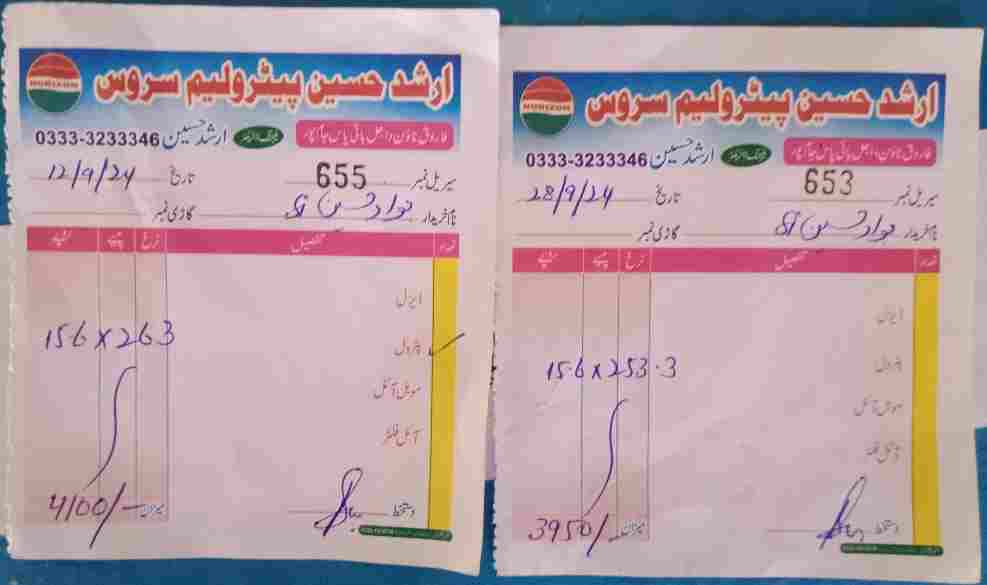 HORIZON
ارشد حسین پیٹرولیم سروس
فاروق ٹاؤن داجل بائی پاس جام پور
ارشد حسین 0333-3233346
سیریل نمبر 655 تاریخ 12/9/24
نام خریدار جواد حسین گاڑی نمبر
تعداد تفصیل نرخ پیسے روپے
ڈیزل
پٹرول ✓
15.6 x 263
موبل آئل
آئل فلٹر
دستخط میزان 4100/-
HORIZON
ارشد حسین پیٹرولیم سروس
فاروق ٹاؤن داجل بائی پاس جام پور
ارشد حسین 0333-3233346
سیریل نمبر 653 تاریخ 28/9/24
نام خریدار جواد حسین گاڑی نمبر
تعداد تفصیل نرخ پیسے روپے
ڈیزل
پٹرول
15.6 x 253.3
موبل آئل
آئل فلٹر
دستخط میزان 3950/-